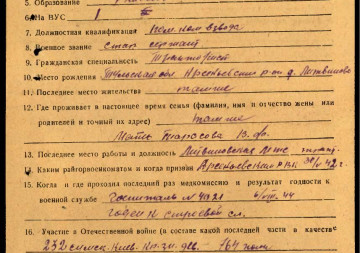 5. Образование
6. На ВУС 1
7. Должностная квалификация пом. ком взвода
8. Военное звание стар сержант
9. Гражданская специальность Тракторист
10. Место рождения Тульская обл Арсеньевский р-он д. Литвиново
11. Последнее место жительства там же
12. Где проживает в настоящее время семья (фамилия, имя и отчество жены или
родителей и точный их адрес) там же
Мать Тарасова В. Ф.
13. Последнее место работы и должность Литвиновская МТС
14. Каким райгорвоенкоматом и когда призван Арсеньевский РВК 42 г.
15. Когда и где проходил последний раз медкомиссию и результат годности к
военной службе Госпиталь № 4021 44
годен к строевой сл.
16. Участие в Отечественной войне (в составе какой последней части в качестве
232 Киев. дев. 764 полк